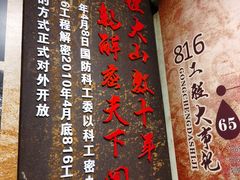 世人山数十年
魂解密天下闻
年4月8日国防科工委以科工密办
16工程解密2010年4月底816工
的方式正式对外开放
816工程大事记
GONGCHENGDASHIJI
65